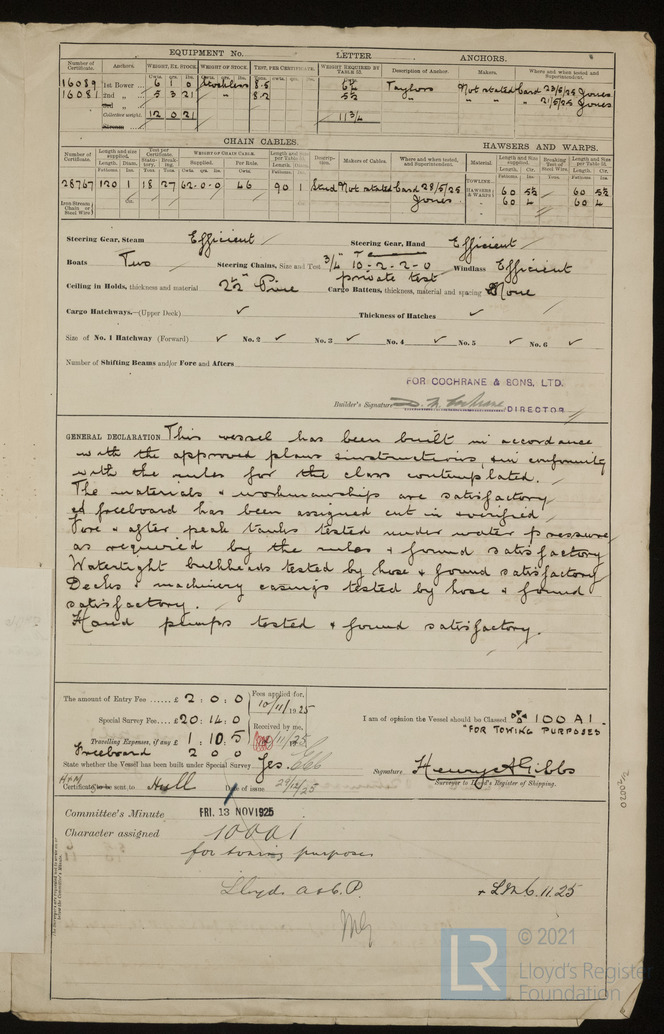 EQUIPMENT No. LETTER ANCHORS.
Number of Certificate. Anchors. WEIGHT, EX. STOCK. WEIGHT OF STOCK. TEST, PER CERTIFICATE. WEIGHT REQUIRED BY TABLE 31. Description of Anchor. Makers. Where and when tested and Superintendent.
16089 1st Bower 6 1 0 Stockless 8.5 6¼ Taylors Not stated Card 23/5/25 Jones
16081 2nd " 5 3 21 " 8.2 5½ " " " 21/5/25 Jones
Collective weight. 12 0 21 11¾
CHAIN CABLES. HAWSERS AND WARPS.
Number of Certificate. Length and size supplied. Test per Certificate. WEIGHT OF CHAIN CABLE. Length and Size per Table 31. Description. Makers of Cables. Where and when tested, and Superintendent. Material. Length and Size supplied. Breaking Test of Steel Wire. Length and Size per Table 31.
Length. Diam. Statutory. Breaking. Supplied. Per Rule. Length. Diam. TOWLINE
28767 120 1 18 27 62.0.0 46 90 1 Stud Not stated Card 28/5/25 HAWSERS & WARPS 60 5½ 60 5½
Jones 60 4 60 4
Iron Stream Chain or Steel Wire
Steering Gear, Steam Efficient Steering Gear, Hand Efficient
Boats Two Steering Chains, Size and Test ¾" 10-2-2-0 private test Windlass Efficient
Ceiling in Holds, thickness and material 2½" Pine Cargo Battens, thickness, material and spacing None
Cargo Hatchways.—(Upper Deck) ✓ Thickness of Hatches ✓
Size of No. 1 Hatchway (Forward) ✓ No. 2 ✓ No. 3 ✓ No. 4 ✓ No. 5 ✓ No. 6 ✓
Number of Shifting Beams and/or Fore and Afters
FOR COCHRANE & SONS, LTD.
Builder's Signature D. M. Cochrane DIRECTOR
GENERAL DECLARATION This vessel has been built in accordance
with the approved plans & instructions, & in conformity
with the rules for the class contemplated.
The materials & workmanship are satisfactory
A freeboard has been assigned cut in & verified
Fore & after peak tanks tested under water pressure
as required by the rules & found satisfactory
Watertight bulkheads tested by hose & found satisfactory
Decks & machinery casings tested by hose & found
satisfactory.
Hand pumps tested & found satisfactory.
The amount of Entry Fee ...... £ 2 : 0 : 0 Fees applied for, 10/11/1925
Special Survey Fee.... £ 20 : 14 : 0 Received by me,
Travelling Expenses, if any £ 1 : 10 : 5
Freeboard 2 0 0
I am of opinion the Vessel should be Classed 100 A1.
"FOR TOWING PURPOSES
State whether the Vessel has been built under Special Survey Yes.
Signature Henry A Gibbs
Surveyor to Lloyd's Register of Shipping.
Certificate to be sent to Hull Date of issue 29/12/25
Committee's Minute FRI. 13 NOV 1925
Character assigned 100A1
for towing purposes
Lloyds A & C.P. + LMC. 11.25
© 2021
LR Lloyd's Register
Foundation